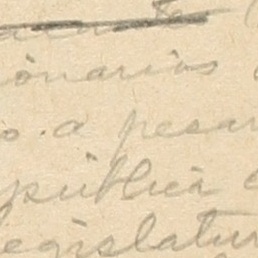 ionarios
o. a pesar
pública
egislatur